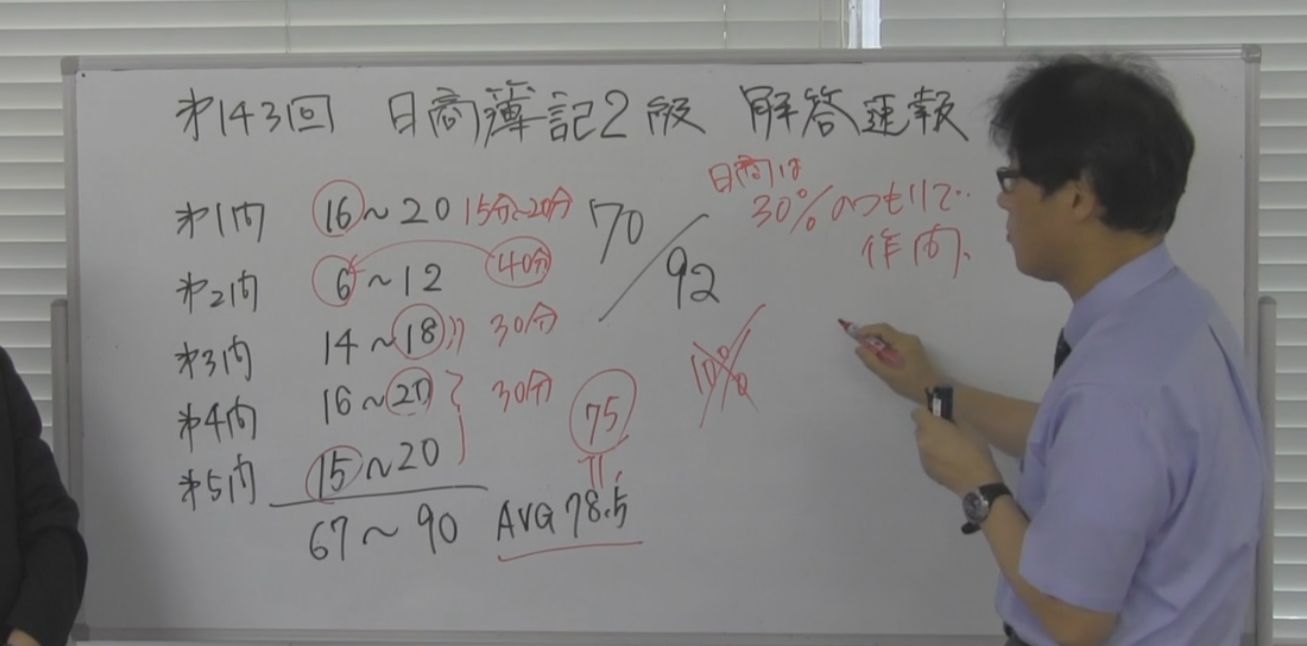 第143回 日商簿記2級 解答速報
第1問 16～20 15分～20分
第2問 6～12 40分
第3問 14～18 30分
第4問 16～20 30分
第5問 15～20
67～90 AVG 78.5
75
70/92
日商は
30%のつもりで‥
作問、
10%